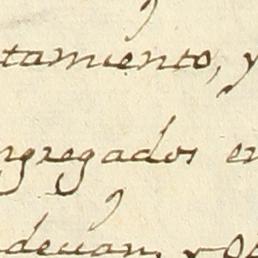 tamiento, y
ngregados en
devian, y